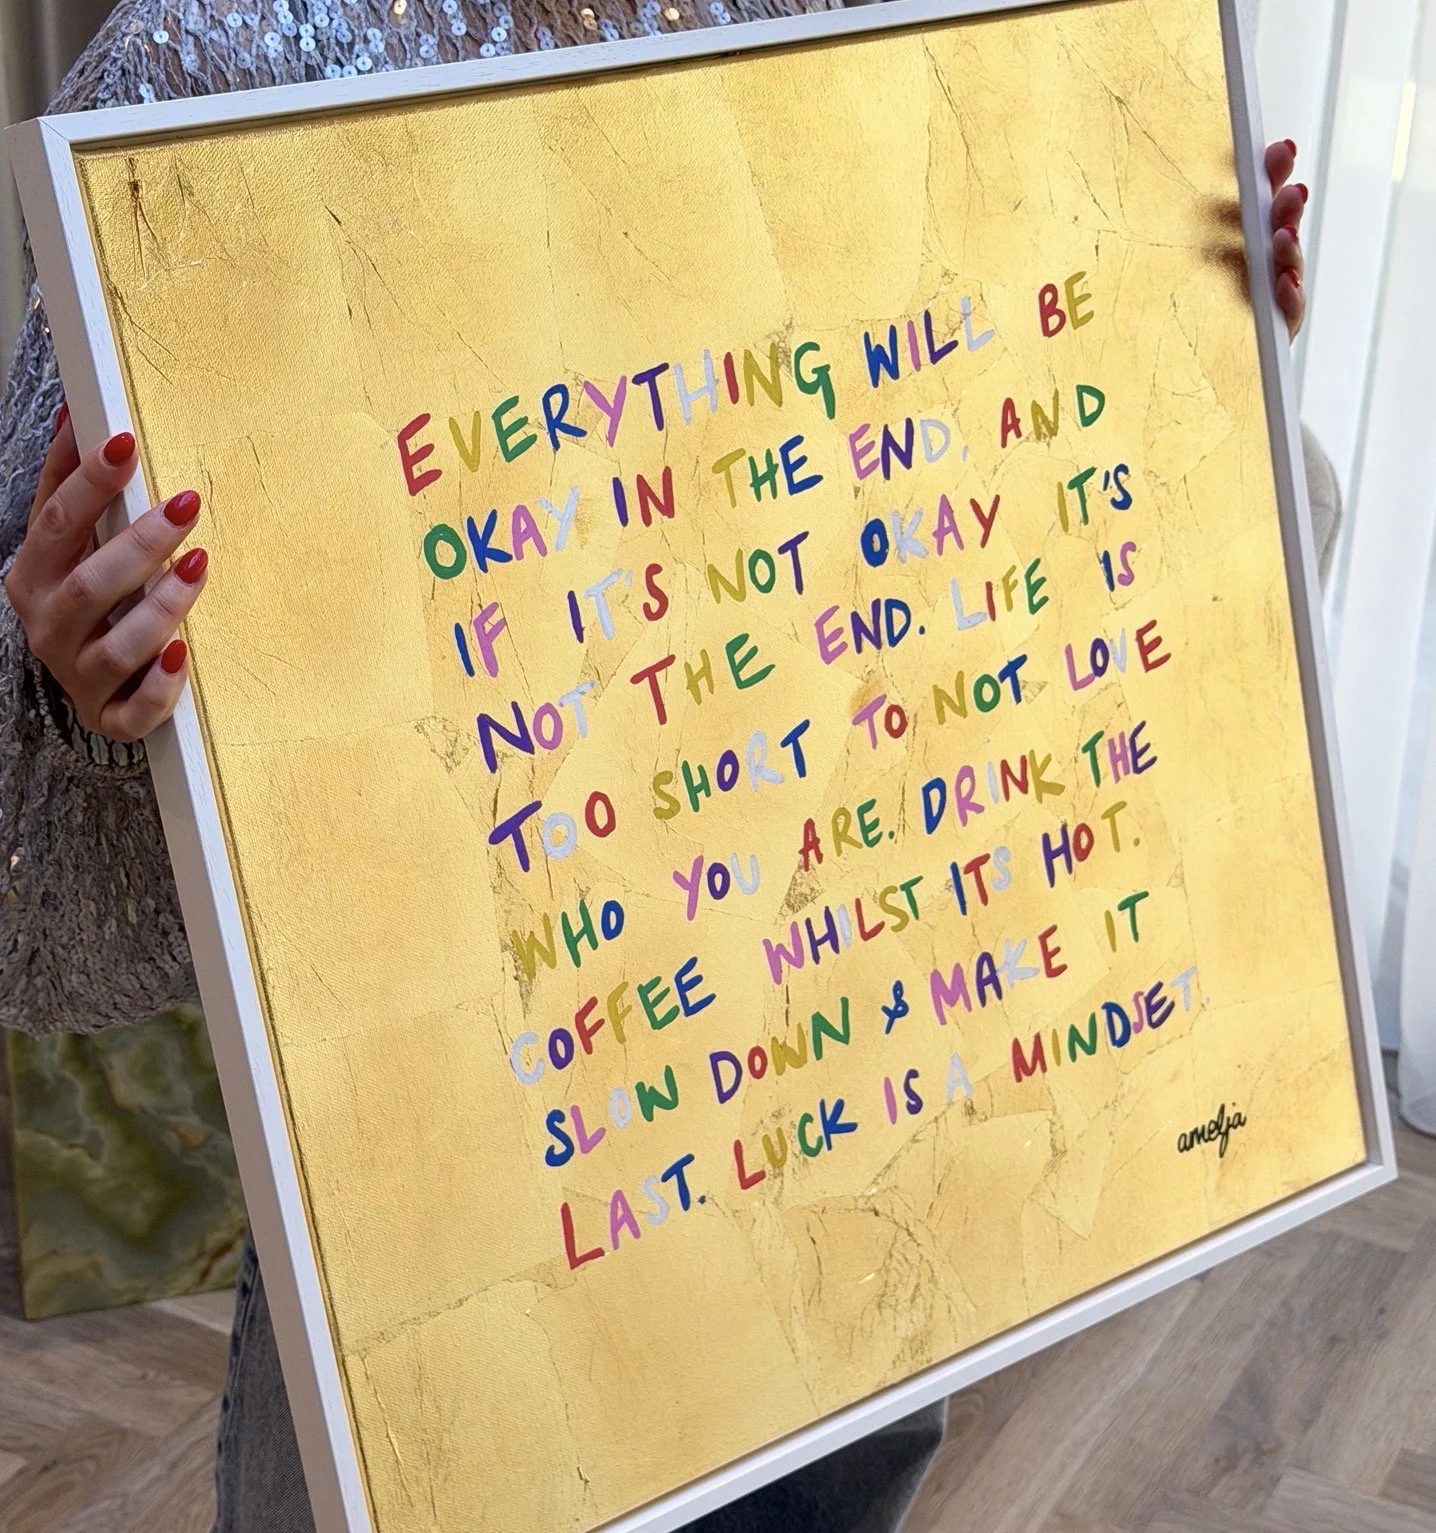 EVERYTHING WILL BE
OKAY IN THE END, AND
IF IT'S NOT OKAY IT'S
NOT THE END. LIFE IS
TOO SHORT TO NOT LOVE
WHO YOU ARE. DRINK THE
COFFEE WHILST ITS HOT.
SLOW DOWN & MAKE IT
LAST. LUCK IS A MINDSET.
amelja